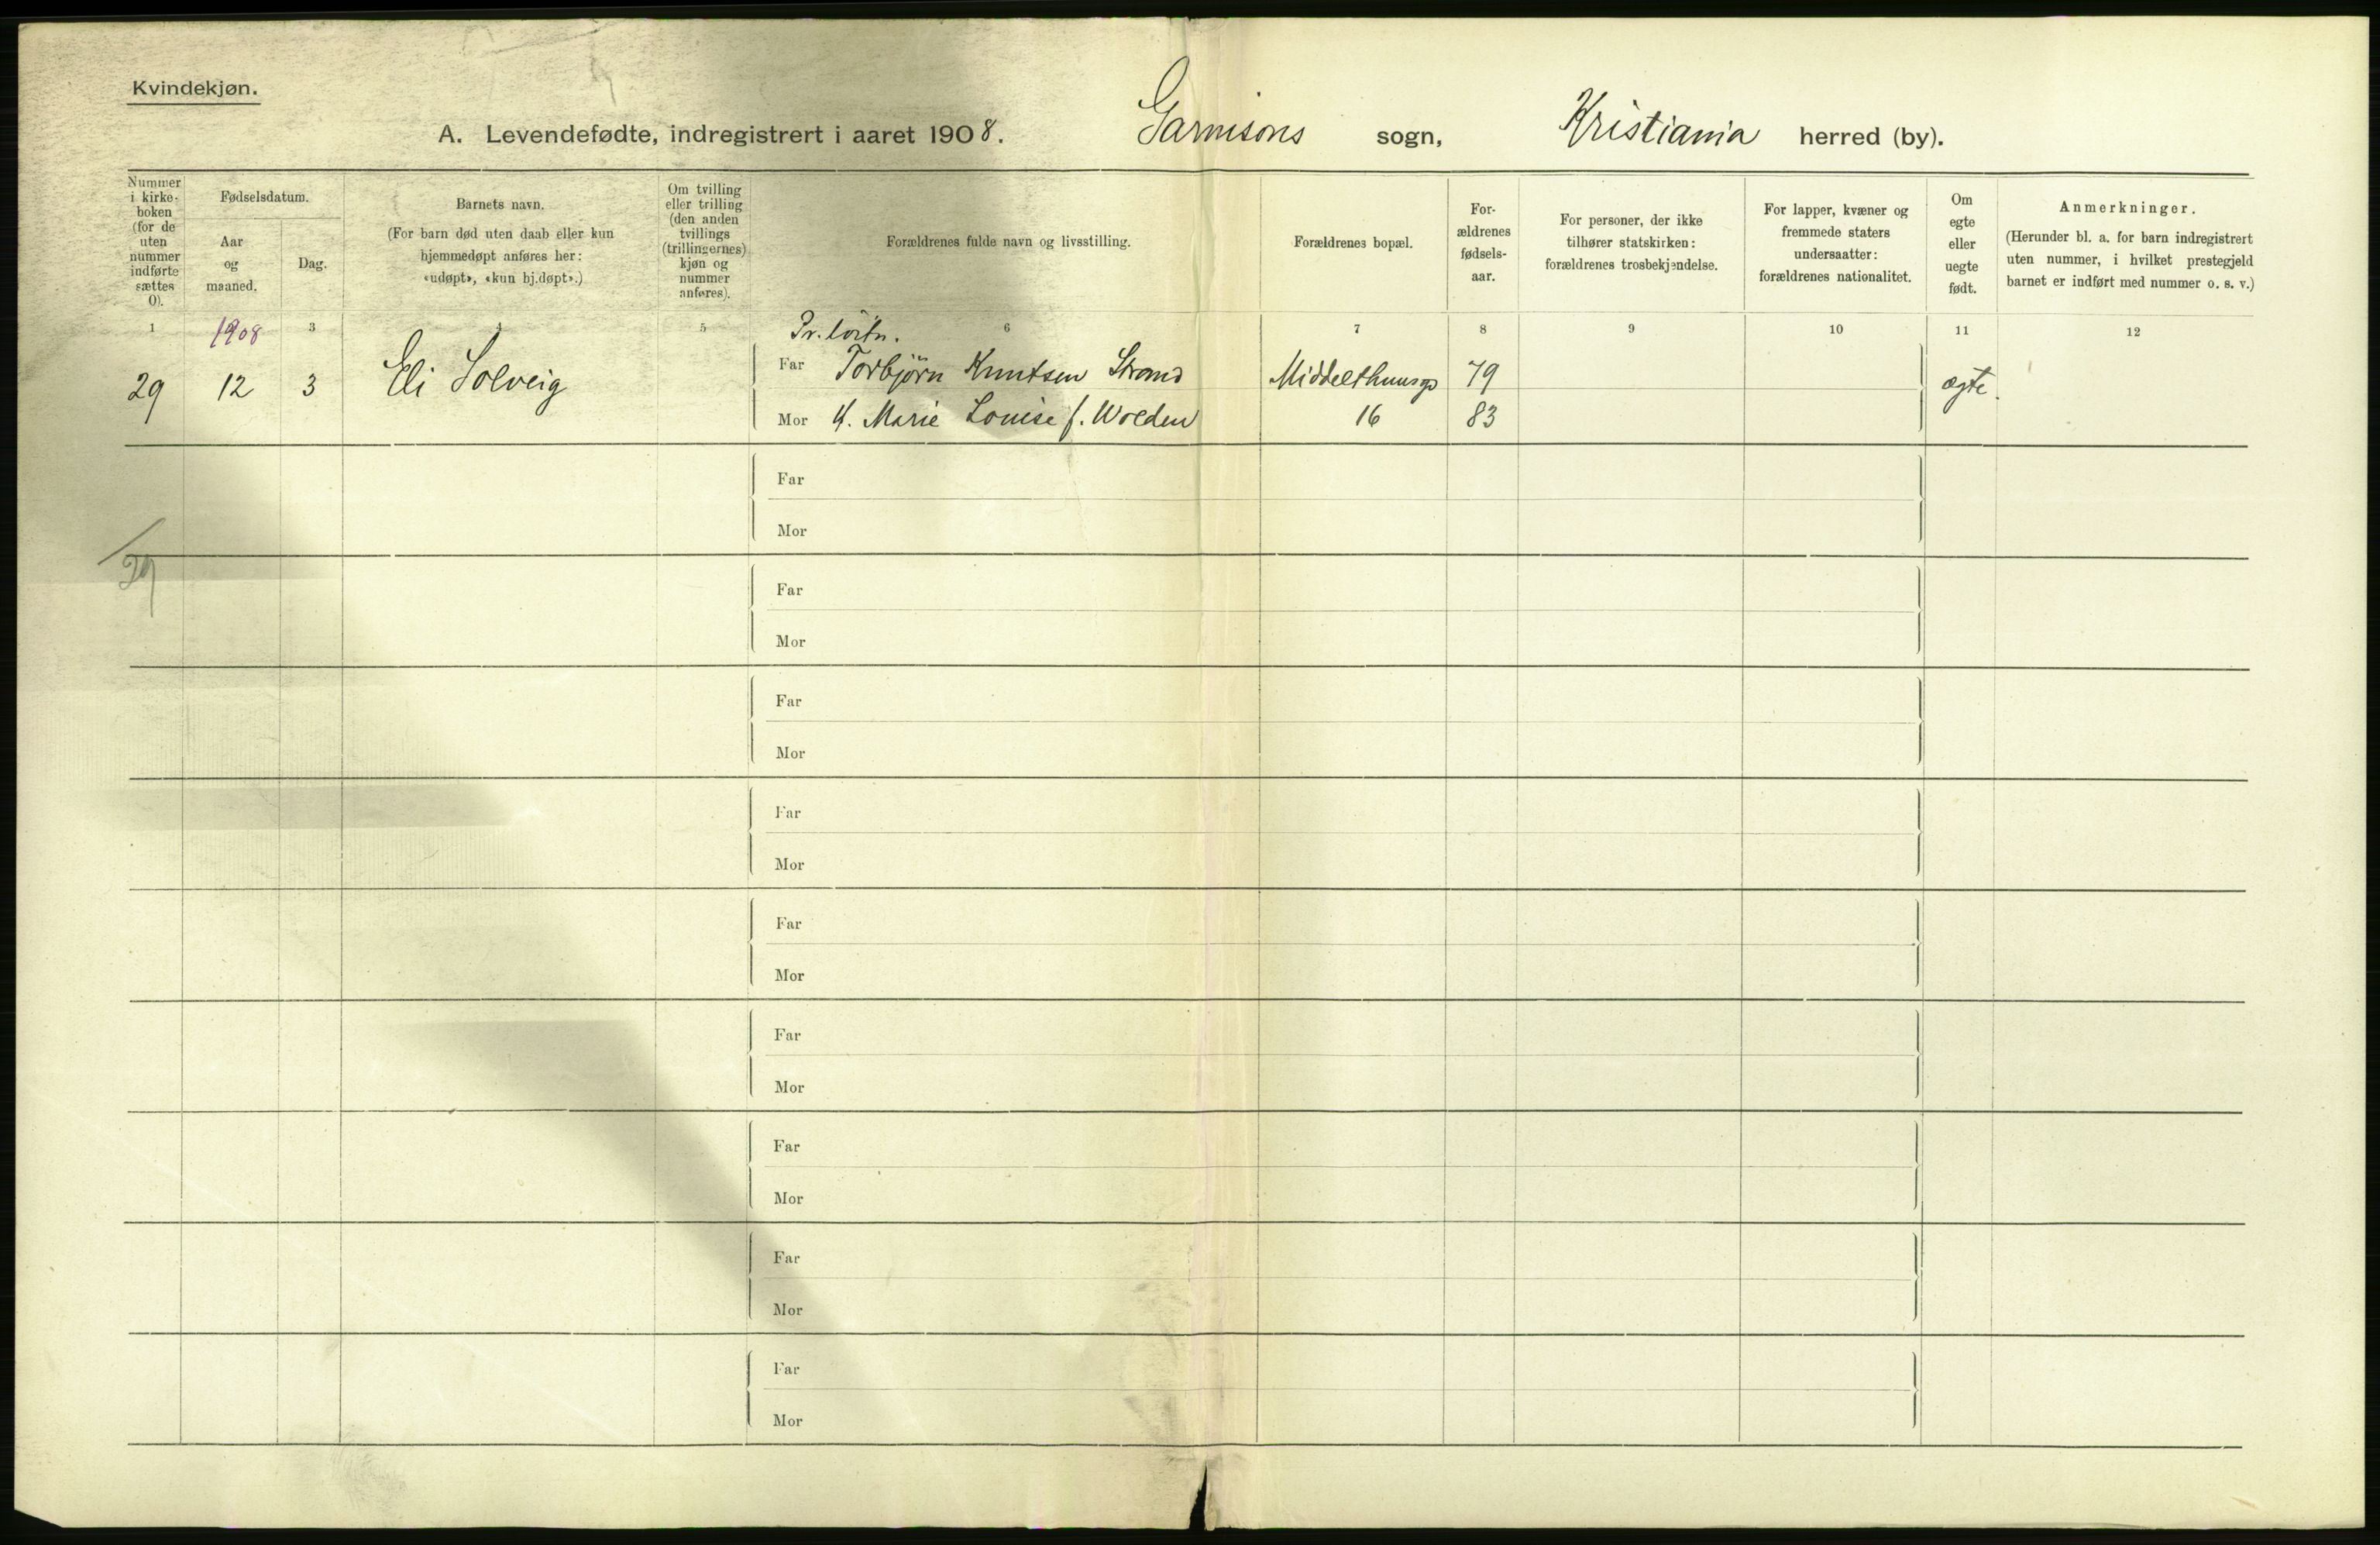 Kvindekjøn.
A. Levendefødte, indregistrert i aaret 1908. Garnisons sogn, Kristiania herred (by).
Nummer i kirke- boken (for de uten nummer indførte sættes 0).
Fødselsdatum.
Aar og maaned.
Dag.
Barnets navn.
(For barn død uten daab eller kun
hjemmedøpt anføres her:
«udøpt», «kun bj.døpt».)
Om tvilling
eller trilling
(den anden
tvillings
(trillingernes)
kjøn og
nummer
anføres).
Forældrenes fulde navn og livsstilling.
Forældrenes bopæl.
For-
ældrenes
fødsels-
aar.
For personer, der ikke
tilhører statskirken:
forældrenes trosbekjendelse.
For lapper, kvæner og
fremmede staters
undersaatter:
forældrenes nationalitet.
Om
egte
eller
uegte
født.
Anmerkninger.
(Herunder bl. a. for barn indregistrert
uten nummer, i hvilket prestegjeld
barnet er indført med nummer o. s. v.)
1 1908 3 4 5 6 7 8 9 10 11 12
Pr. löitn.
29 12 3 Eli Solveig Far Torbjörn Knutsen Strand Middelthunsgt 79 ægte.
Mor H. Marie Louise f. Wolden 16 83
Far
Mor
29
Far
Mor
Far
Mor
Far
Mor
Far
Mor
Far
Mor
Far
Mor
Far
Mor
Far
Mor